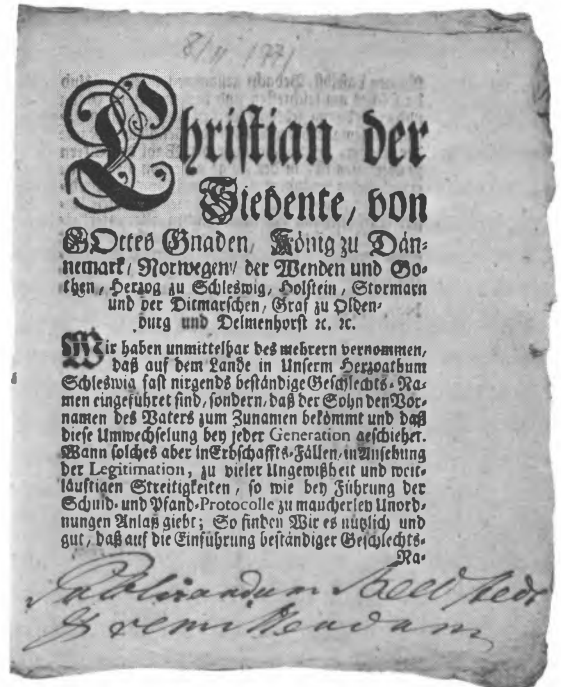 8/11 1771
Christian der
Siebente, von
GOttes Gnaden, König zu Dän-
nemark, Norwegen, der Wenden und Go-
then, Herzog zu Schleswig, Holstein, Stormarn
und der Ditmarschen, Graf zu Olden-
burg und Delmenhorst ꝛc. ꝛc.
Wir haben unmittelbar des mehrern vernommen,
daß auf dem Lande in Unserm Herzogthum
Schleswig fast nirgends beständige Geschlechts-Na-
men eingeführet sind, sondern, daß der Sohn den Vor-
namen des Vaters zum Zunamen bekömmt und daß
diese Umwechselung bey jeder Generation geschiehet.
Wann solches aber in Erbschaffts-Fällen, in Ansehung
der Legitimation, zu vieler Ungewißheit und weit-
läuftigen Streitigkeiten, so wie bey Führung der
Schuld- und Pfand-Protocolle zu mancherley Unord-
nungen Anlaß giebt; So finden Wir es nützlich und
gut, daß auf die Einführung beständiger Geschlechts-
Na-
Publicandum
& remittendum